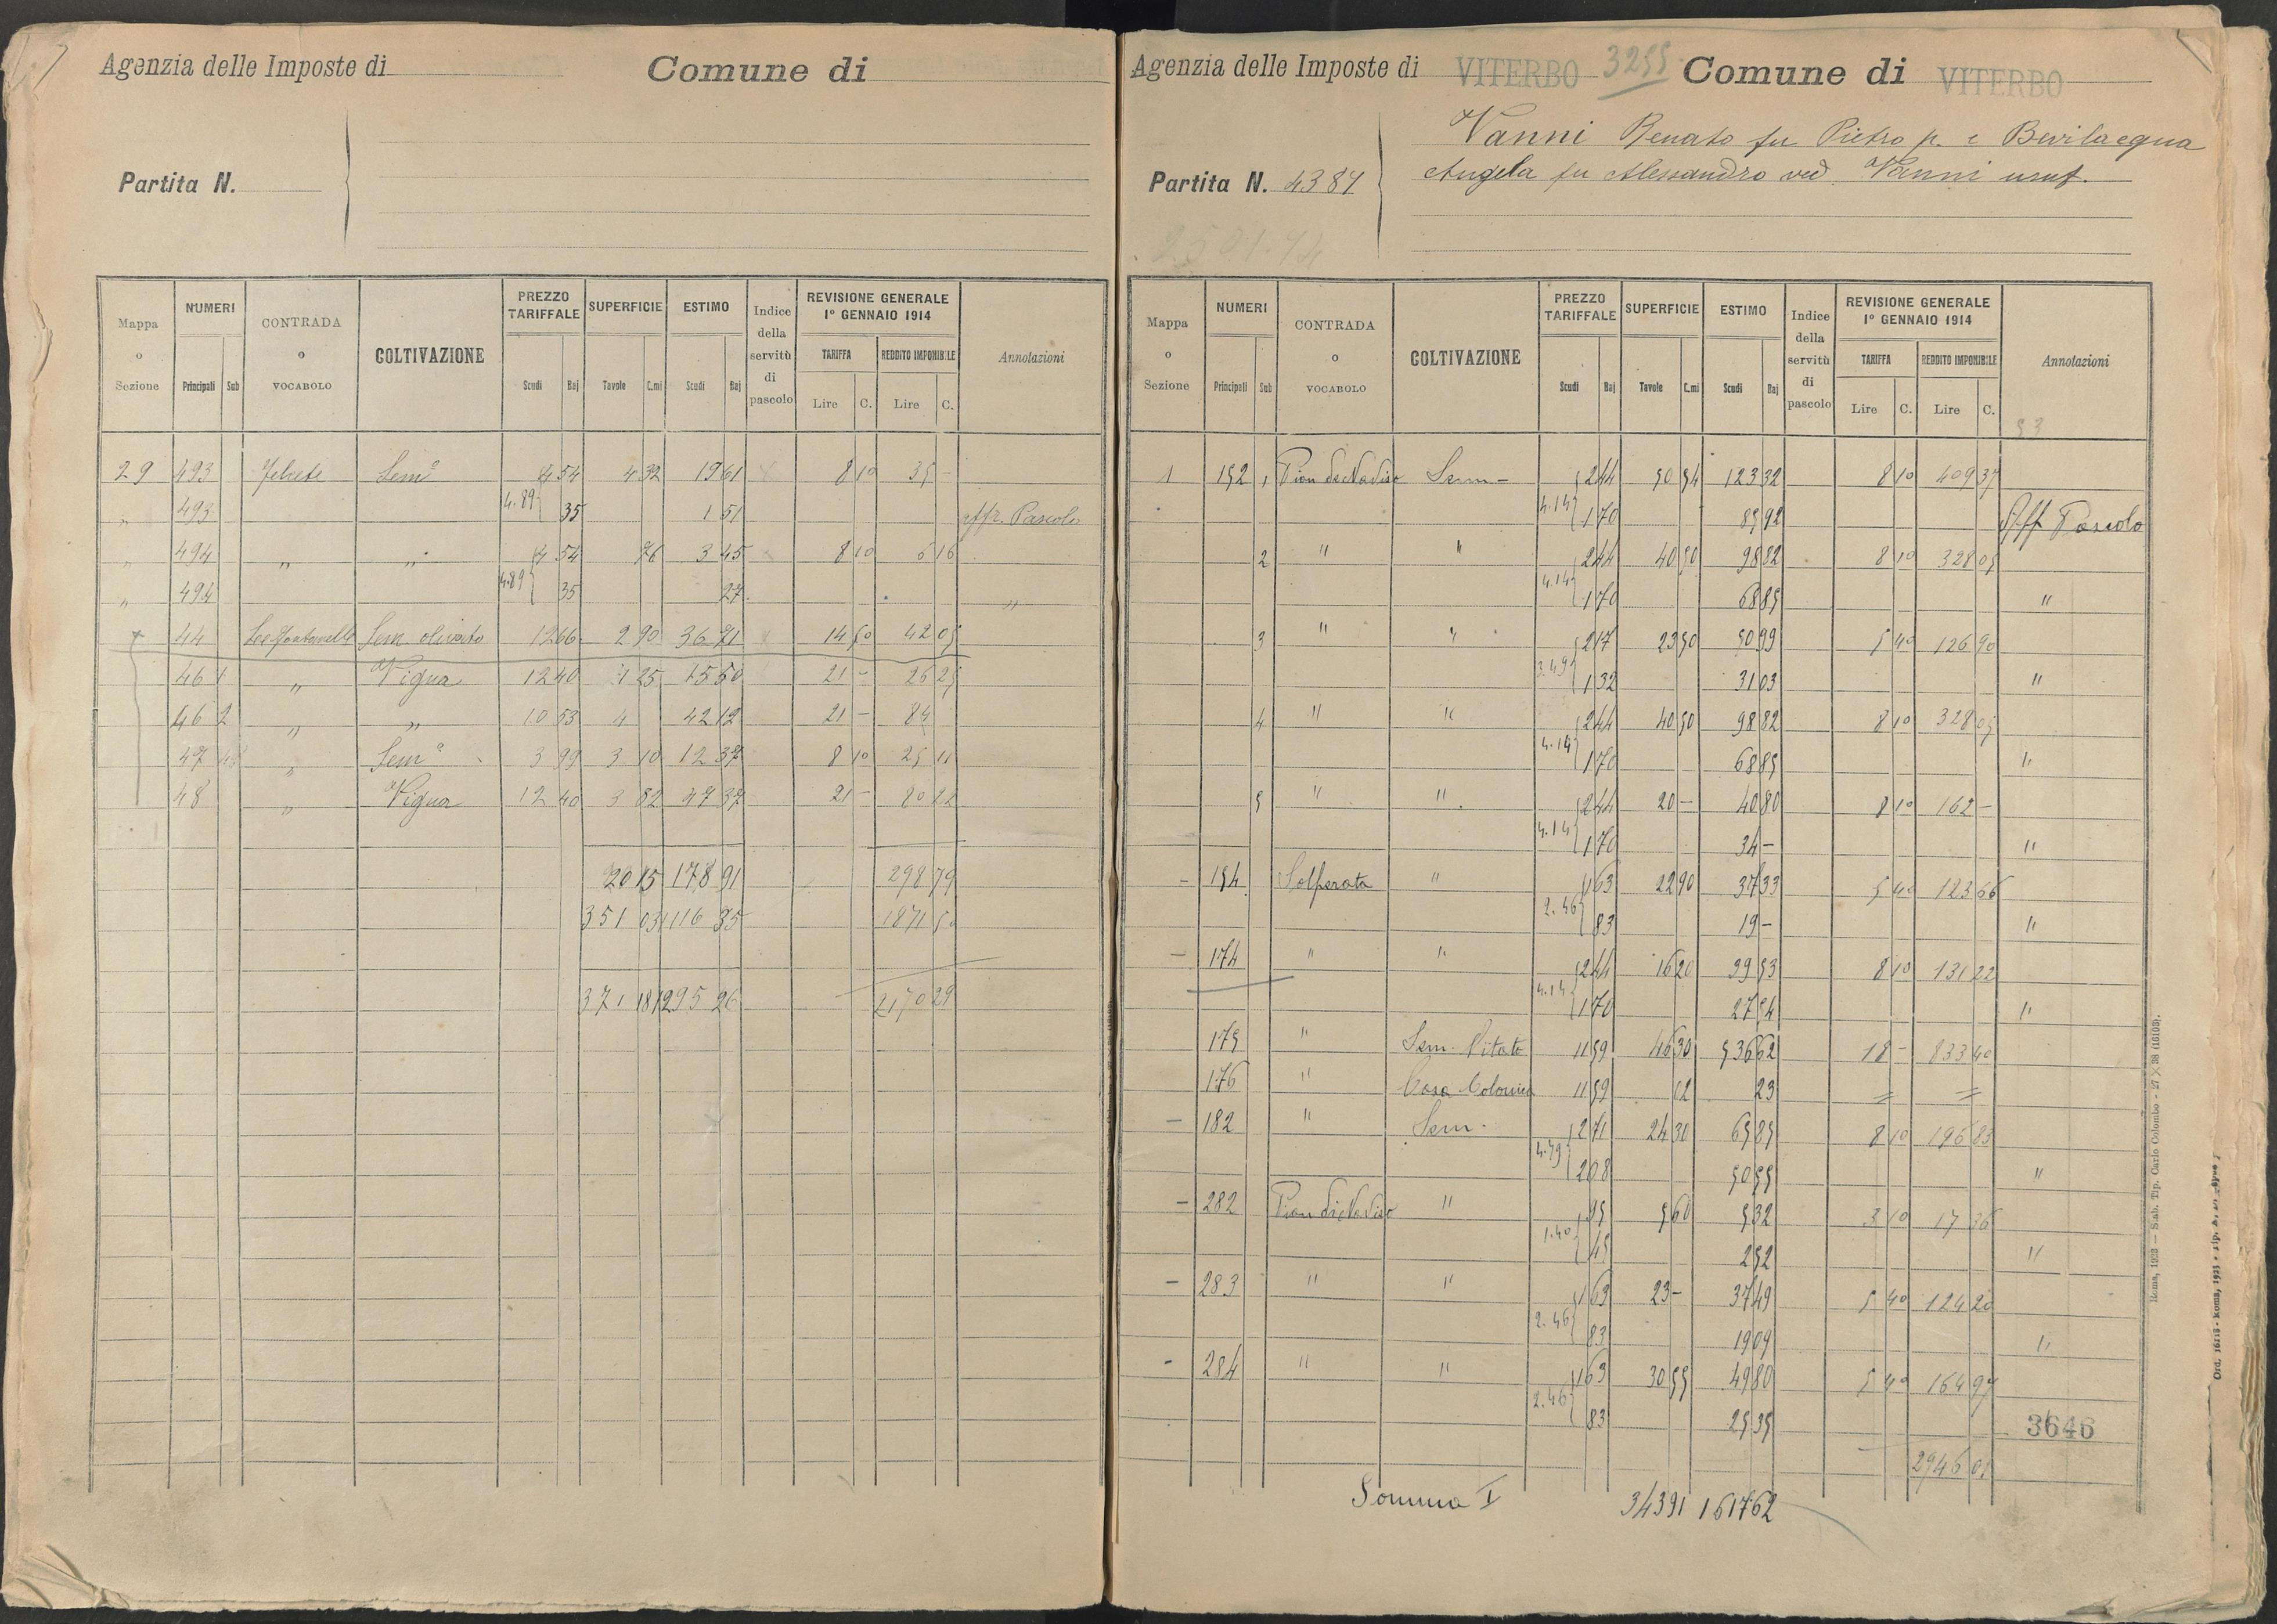 Agenzia delle Imposte di Comune di
Partita N.
Mappa o Sezione NUMERI Principali Sub CONTRADA o VOCABOLO COLTIVAZIONE PREZZO TARIFFALE Scudi Baj SUPERFICIE Tavole C.mi ESTIMO Scudi Baj Indice della servitù di pascolo REVISIONE GENERALE 1º GENNAIO 1914 TARIFFA Lire C. REDDITO IMPONIBILE Lire C. Annotazioni
29 493 Semº 4 54 4 32 19 61 8 10 35 -
" 493 4.89 35 1 51 Affr. Pascolo
" 494 " " 4 54 76 3 45 8 10 6 16
" 494 4.89 35 27 "
44 Sem. olivato 12 66 2 90 36 71 14 50 42 05
46 1 " Vigna 12 40 1 25 15 50 21 - 26 25
46 2 " " 10 53 4 42 12 21 - 84
47 " Semº 3 99 3 10 12 37 8 10 25 11
48 " Vigna 12 40 3 82 47 37 21 - 80 22
20 15 178 91 298 79
351 03 1116 35 1871 50
371 18 1295 26 2170 29
Agenzia delle Imposte di VITERBO 3255 Comune di VITERBO
Vanni Renato fu Pietro p. e Bevilacqua
Partita N. 4384 Angela fu Alessandro ved. Vanni usuf.
Mappa o Sezione NUMERI Principali Sub CONTRADA o VOCABOLO COLTIVAZIONE PREZZO TARIFFALE Scudi Baj SUPERFICIE Tavole C.mi ESTIMO Scudi Baj Indice della servitù di pascolo REVISIONE GENERALE 1º GENNAIO 1914 TARIFFA Lire C. REDDITO IMPONIBILE Lire C. Annotazioni
1 152 1 Pian di Nadiso Sem - 2 44 50 54 123 32 8 10 409 37
4.14 1 70 85 92 Aff Pascolo
2 " " 2 44 40 50 98 82 8 10 328 05
4.14 1 70 68 85 "
3 " " 2 17 23 50 50 99 5 40 126 90
3.49 1 32 31 03 "
4 " " 2 44 40 50 98 82 8 10 328 05
4.14 1 70 68 85 "
5 " " 2 44 20 - 40 80 8 10 162 -
4.14 1 70 34 - "
- 154 Solferata " 1 63 22 90 37 33 5 40 123 66
2.46 83 19 - "
- 174 " " 2 44 16 20 39 53 8 10 131 22
4.14 1 70 27 54 "
175 " Sem. Vitato 11 59 46 30 536 62 18 - 833 40
176 " Casa Colonica 11 59 02 23 = =
- 182 " Sem. 2 71 24 30 65 85 8 10 196 83
4.79 2 08 50 55 "
- 282 Pian di Nadiso " 95 5 60 5 32 3 10 17 36
1.40 45 2 52 "
- 283 " " 1 63 23 - 37 49 5 40 124 20
2.46 83 19 09 "
- 284 " " 1 63 30 55 49 80 5 40 164 97
2.46 83 25 35
3646
2946 01
Somma I 343 91 1617 62
Roma, 1923 — Stab. Tip. Carlo Colombo - 27 × 38 (16108).